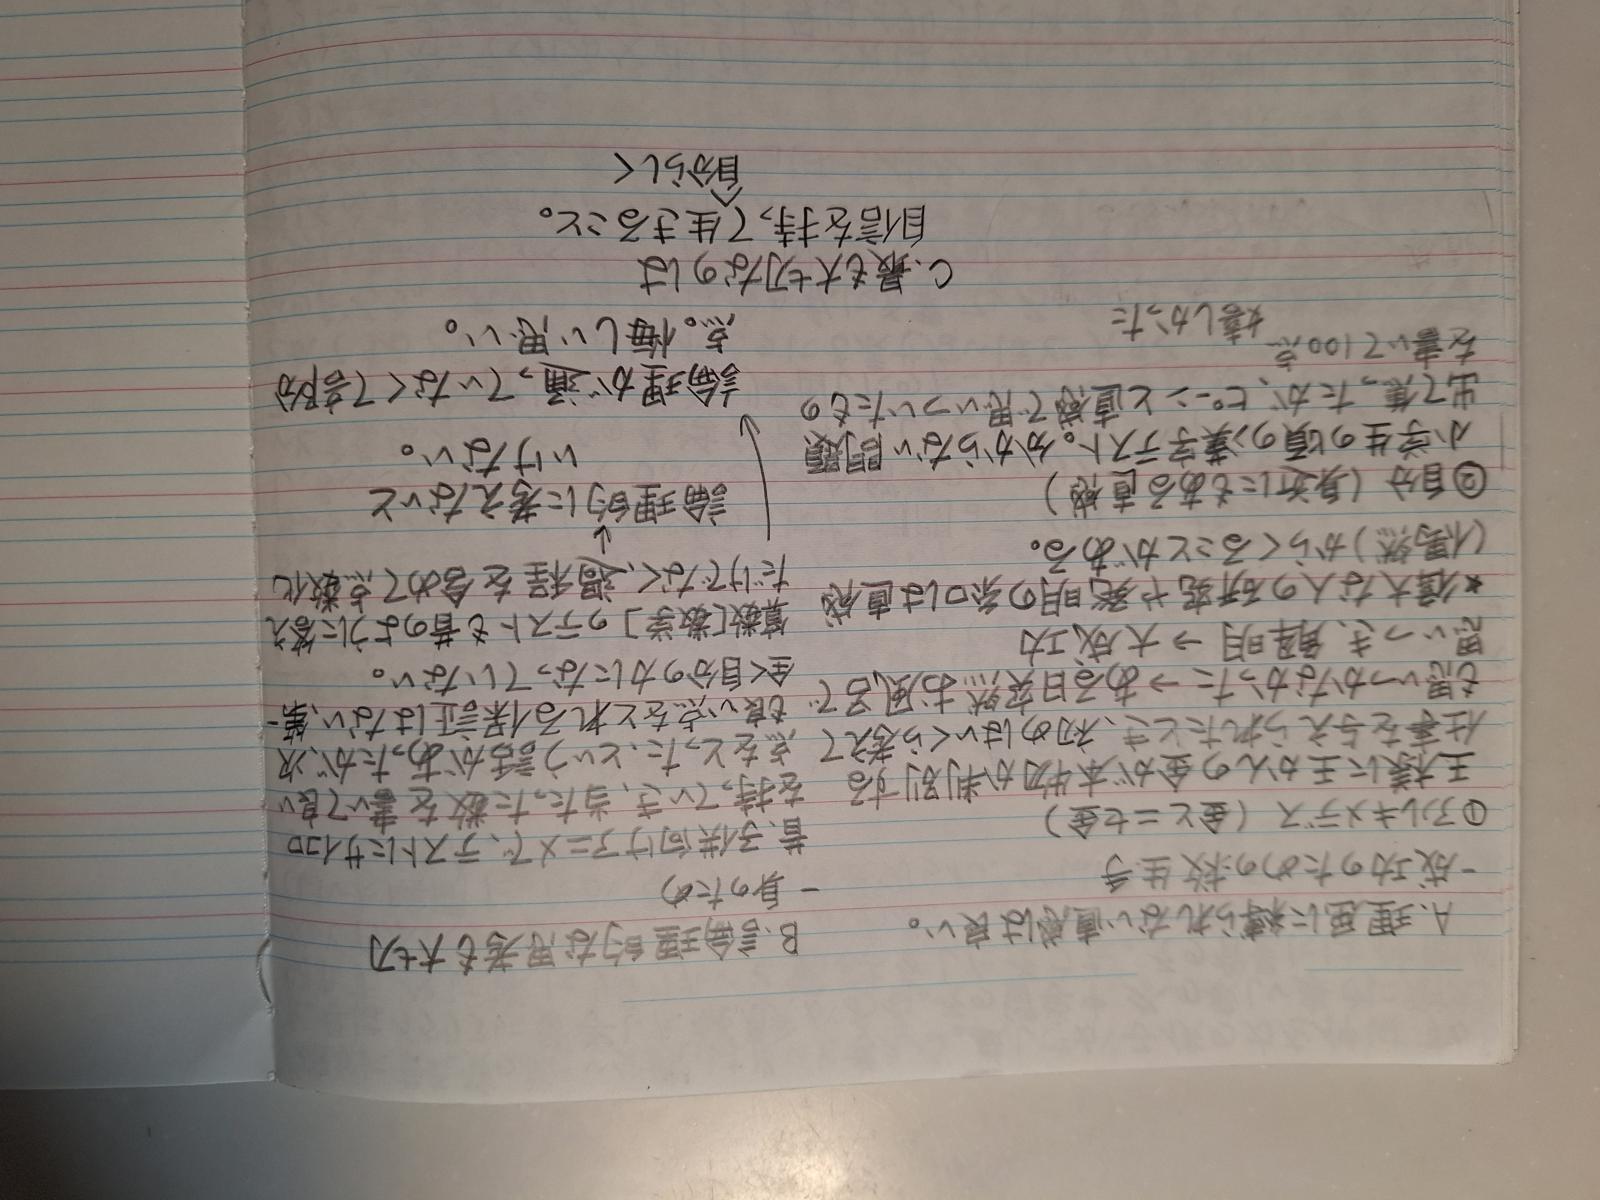 A. 理屈に縛られない直感は良い。
- 成功のための救生手
①アルキメデス (金とニセ金)
王様に王かんの金が本物か判別する
仕事を与えられたとき、初めはいくら考えて
も思いつかなかった → ある日突然お風呂で
思いつき、解明 → 大成功
*偉大な人の研究や発明の糸口は直感
(偶然)からくることがある。
②自分 (身近にもある直感)
小学生の頃の漢字テスト。分からない問題
出て焦ったが、ピーンと直感で思いついたもの
を書いて100点
嬉しかった
B. 論理的な思考も大切
- 身のため
昔、子供向けアニメで、テストにサイコロ
を持っていき、当たった数を書いて良い
点をとった、という話があったが、次
も良い点をとれる保証はない、第一
全く自分の力になっていない。
算数[数学]のテストも昔のように答え
だけでなく、過程を含めて点数化
論理的に考えないと
いけない。
論理が通っていなくて部分
点。悔しい思い。
C. 最も大切なのは
自信を持って生きること。
自分らしく